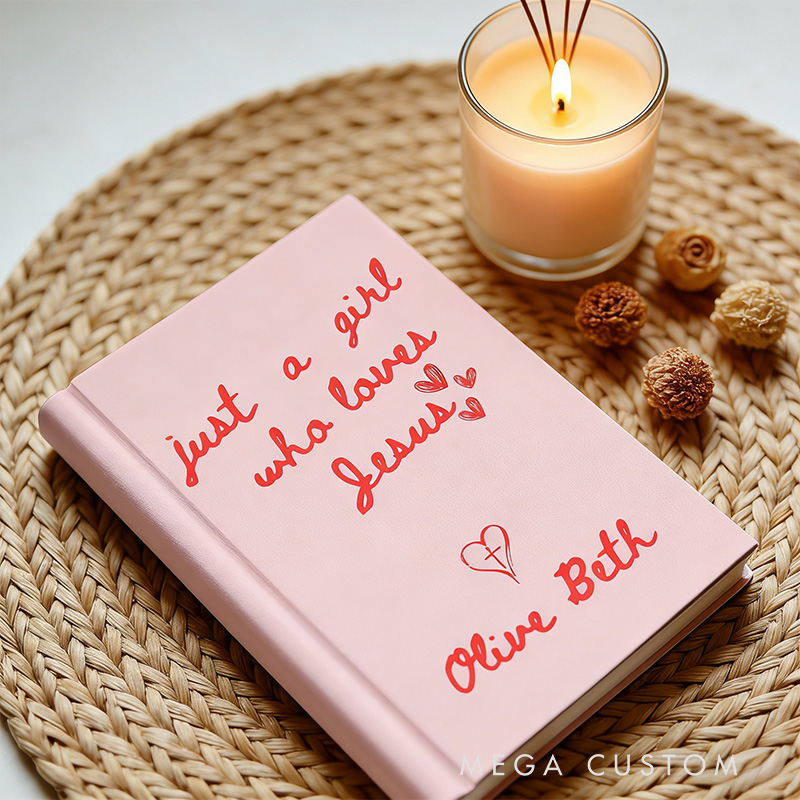 just a girl
who loves
Jesus
Olive Beth
MEGA CUSTOM